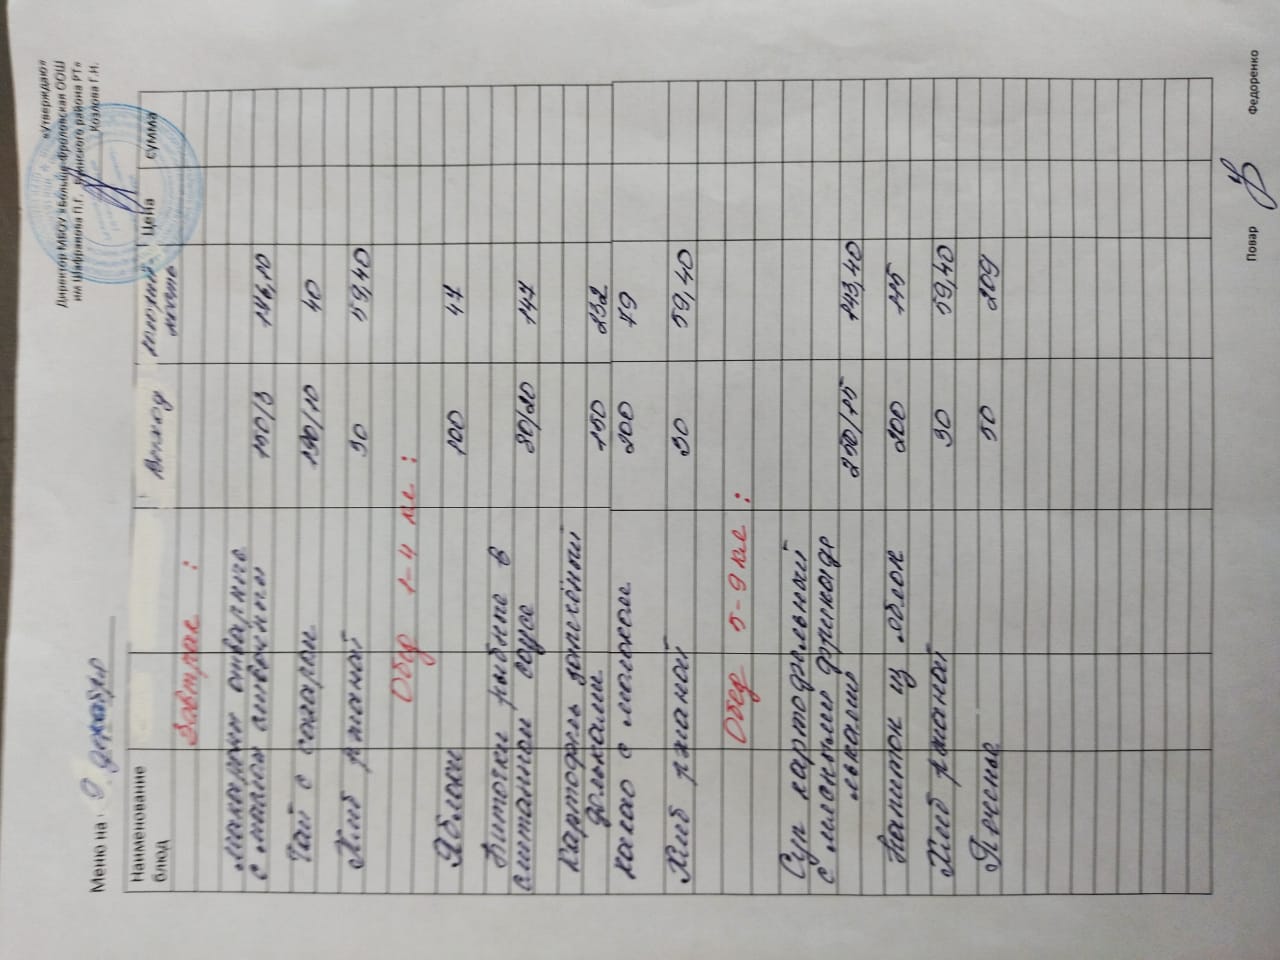 «Утверждаю»
Директор МБОУ «Больше-Фроловская ООШ
им Шафранова П.Г. Буинского района РТ»
Козлова Г.Н.
Меню на 9 декабря
Наименование блюд Выход калорий- ность Цена сумма
Завтрак :
Макароны отварные
с маслом сливочным 150/3 146,10
Чай с сахаром 190/10 40
Хлеб ржаной 30 59,40
Обед 1-4 кл :
Яблоки 100 47
Биточки рыбные в
сметанном соусе 80/20 147
Картофель запечённый
дольками 150 232
какао с молоком 200 79
Хлеб ржаной 30 59,40
Обед 5-9 кл :
Суп картофельный
с мясными фрикаде
льками 250/15 143,40
Напиток из яблок 200 115
Хлеб ржаной 30 59,40
Печенье 50 209
Повар Федоренко